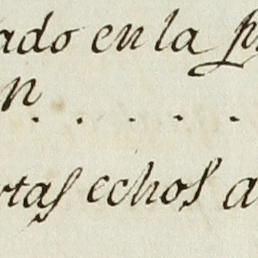 ado en la p
n . . . . .
rtas echos a